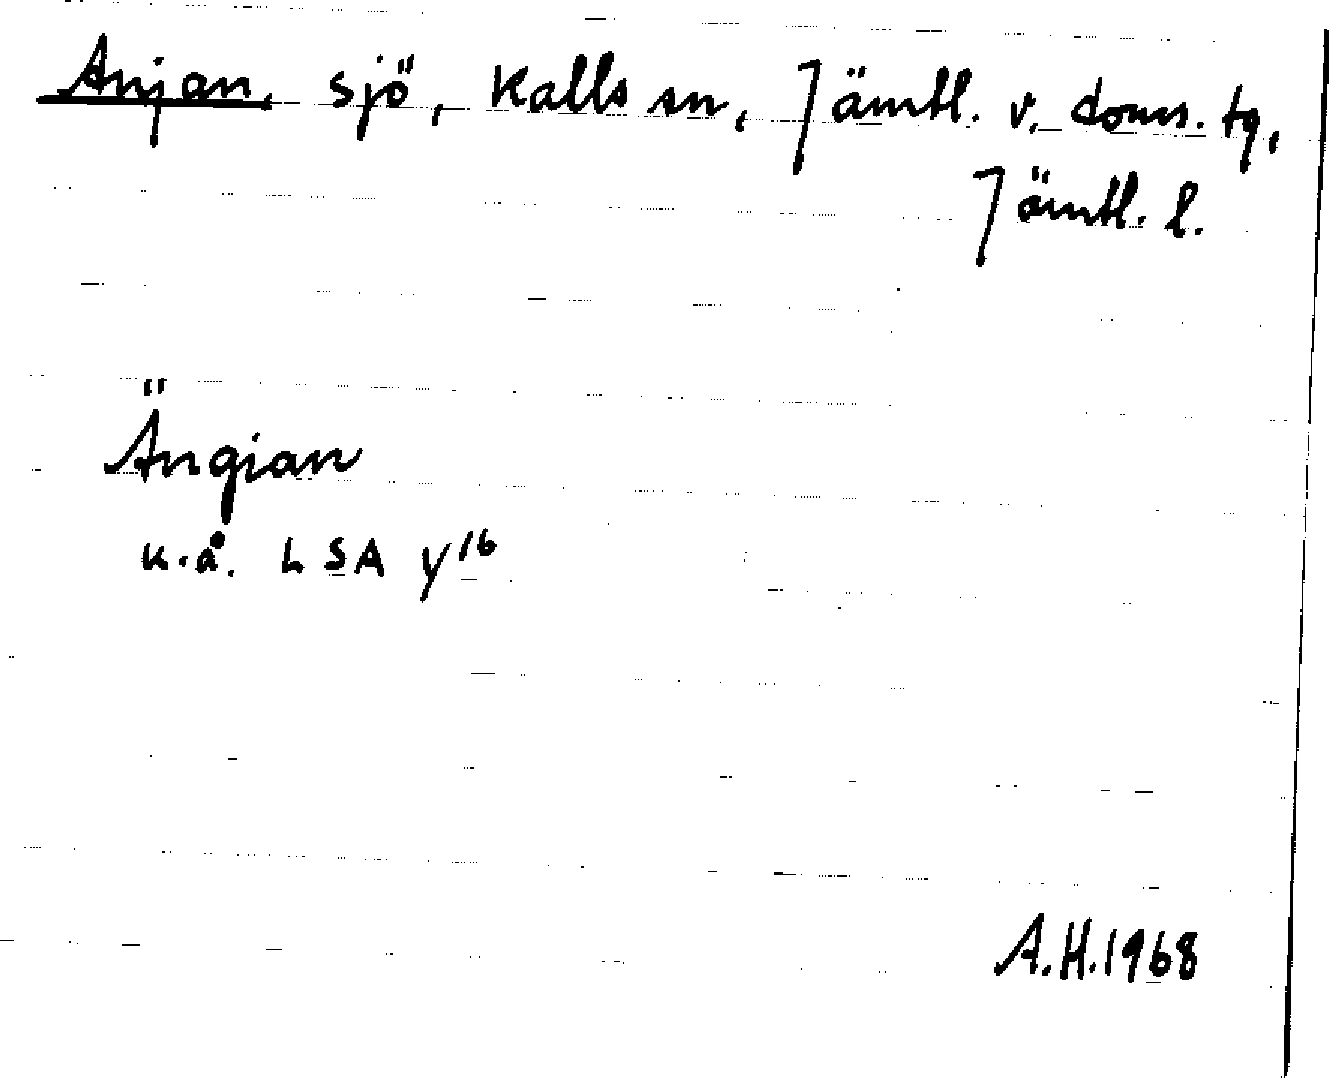 Anjan, sjö, Kalls sn, Jämtl. v. doms. tg,
Jämtl. l.
Ängian
u.å. LSA y16
A.H.1968